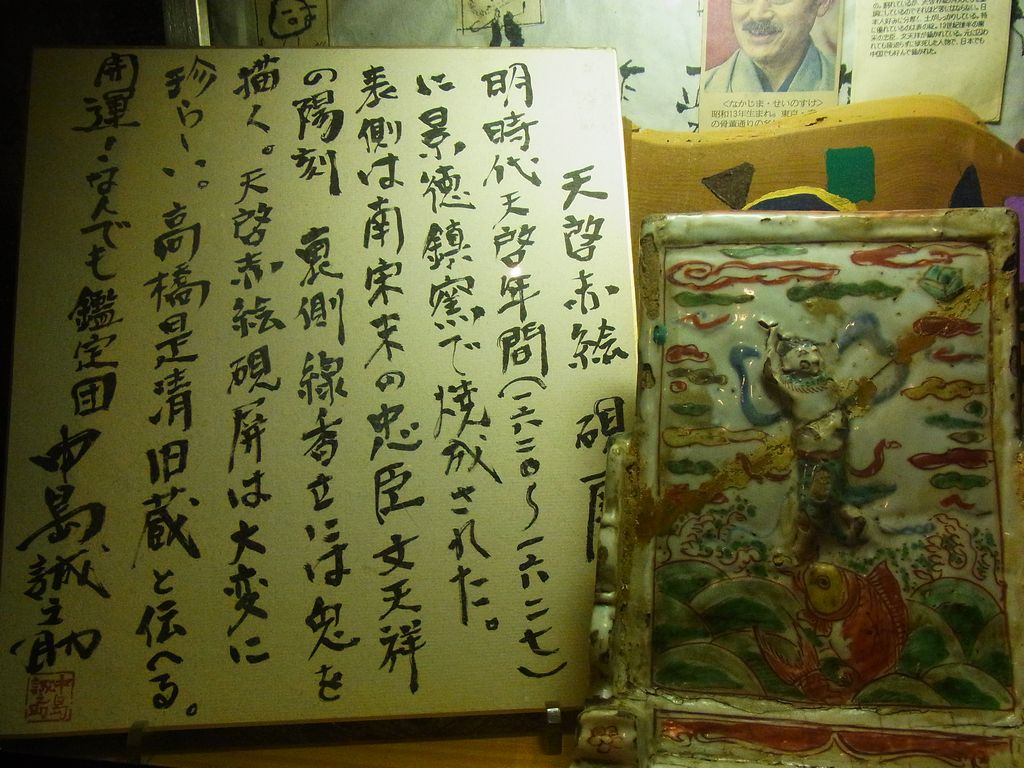 天啓赤絵 硯屏
明時代天啓年間(一六二〇〜一六二七)
に景徳鎮窯で焼成された。
表側は南宋末の忠臣文天祥
の陽刻 裏側線香立には兎を
描く。天啓赤絵硯屏は大変に
珍らしい。高橋是清旧蔵と伝へる。
開運!なんでも鑑定団 中島誠之助
中島
誠之助
<なかじま・せいのすけ>
昭和13年生まれ。東京・
の骨董通りの名